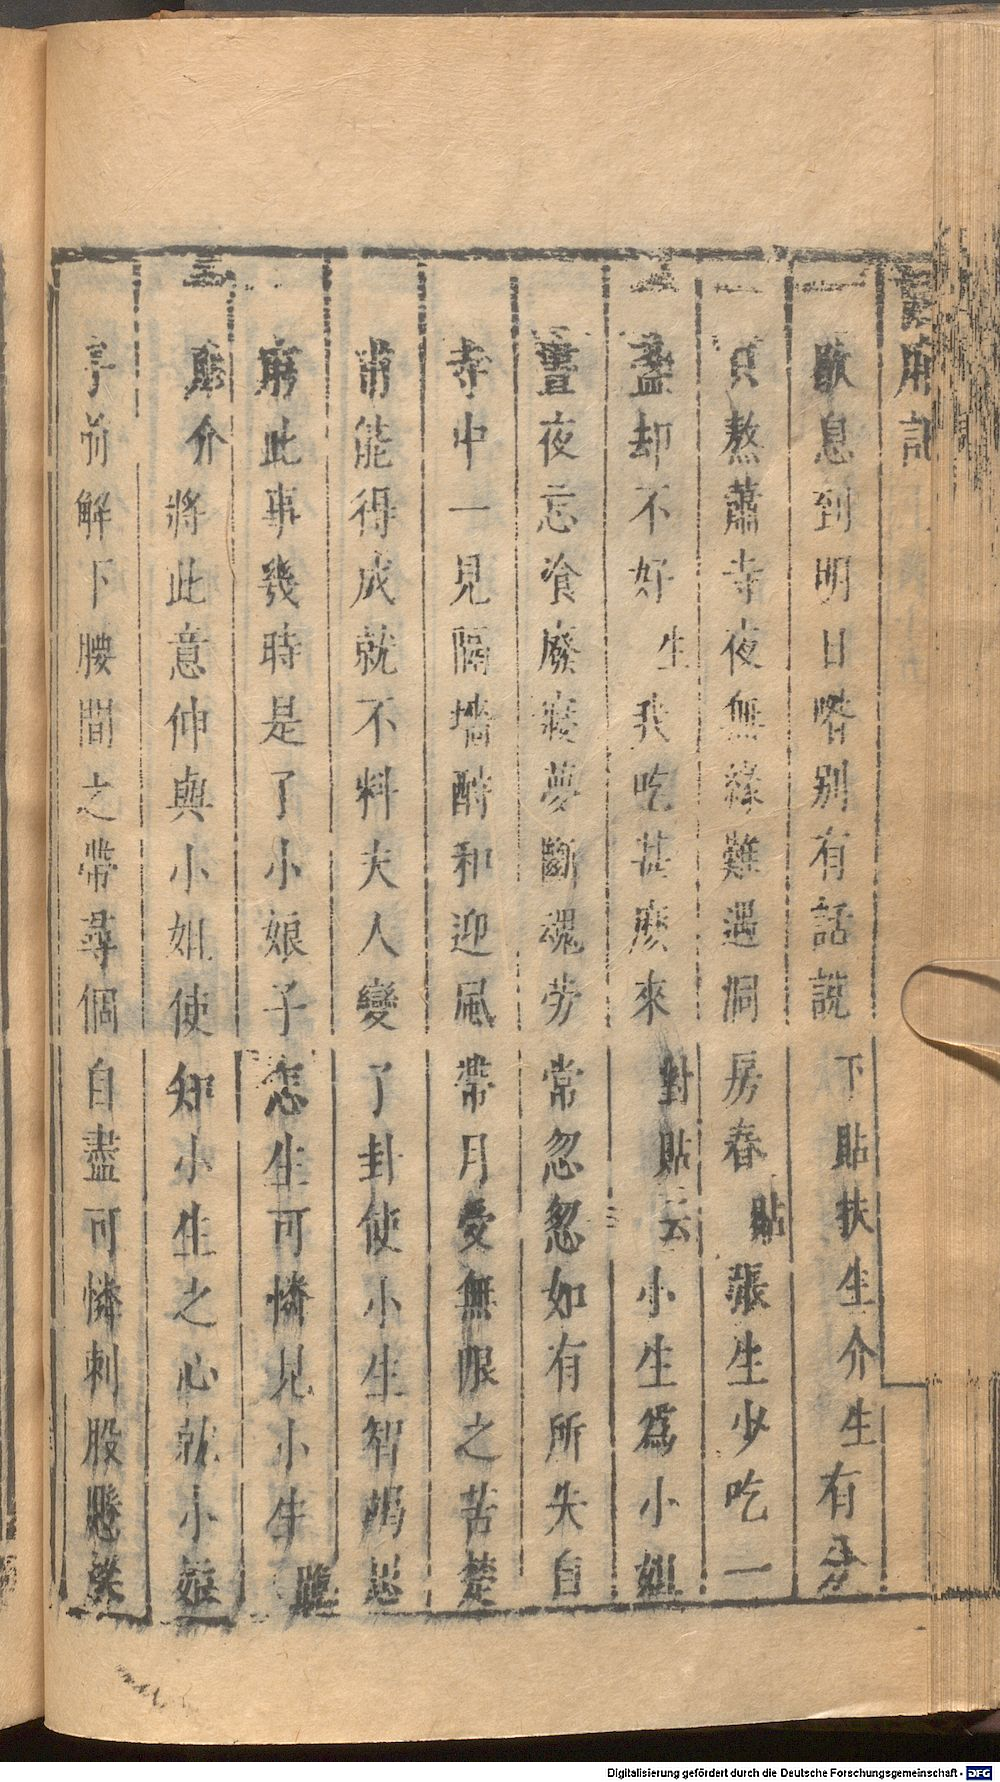 廂記
歇息到明日咯别有話說下貼扶生介生有分
只熬蕭寺夜無緣難遇洞房春貼張生少吃一
盞却不好生我吃甚麽來對貼云小生爲小姐
晝夜忘飡廢寢夢斷魂劳常忽忽如有所失自
寺中一見隔墻酧和迎風帶月受無限之苦楚
甫能得成就不料夫人變了卦使小生智竭思
窮此事幾時是了小娘子怎生可憐見小生跪
介將此意伸與小姐使知小生之心就小娘
子前解下腰間之帶尋個自盡可憐刺股懸
Digitalisierung gefördert durch die Deutsche Forschungsgemeinschaft - DFG